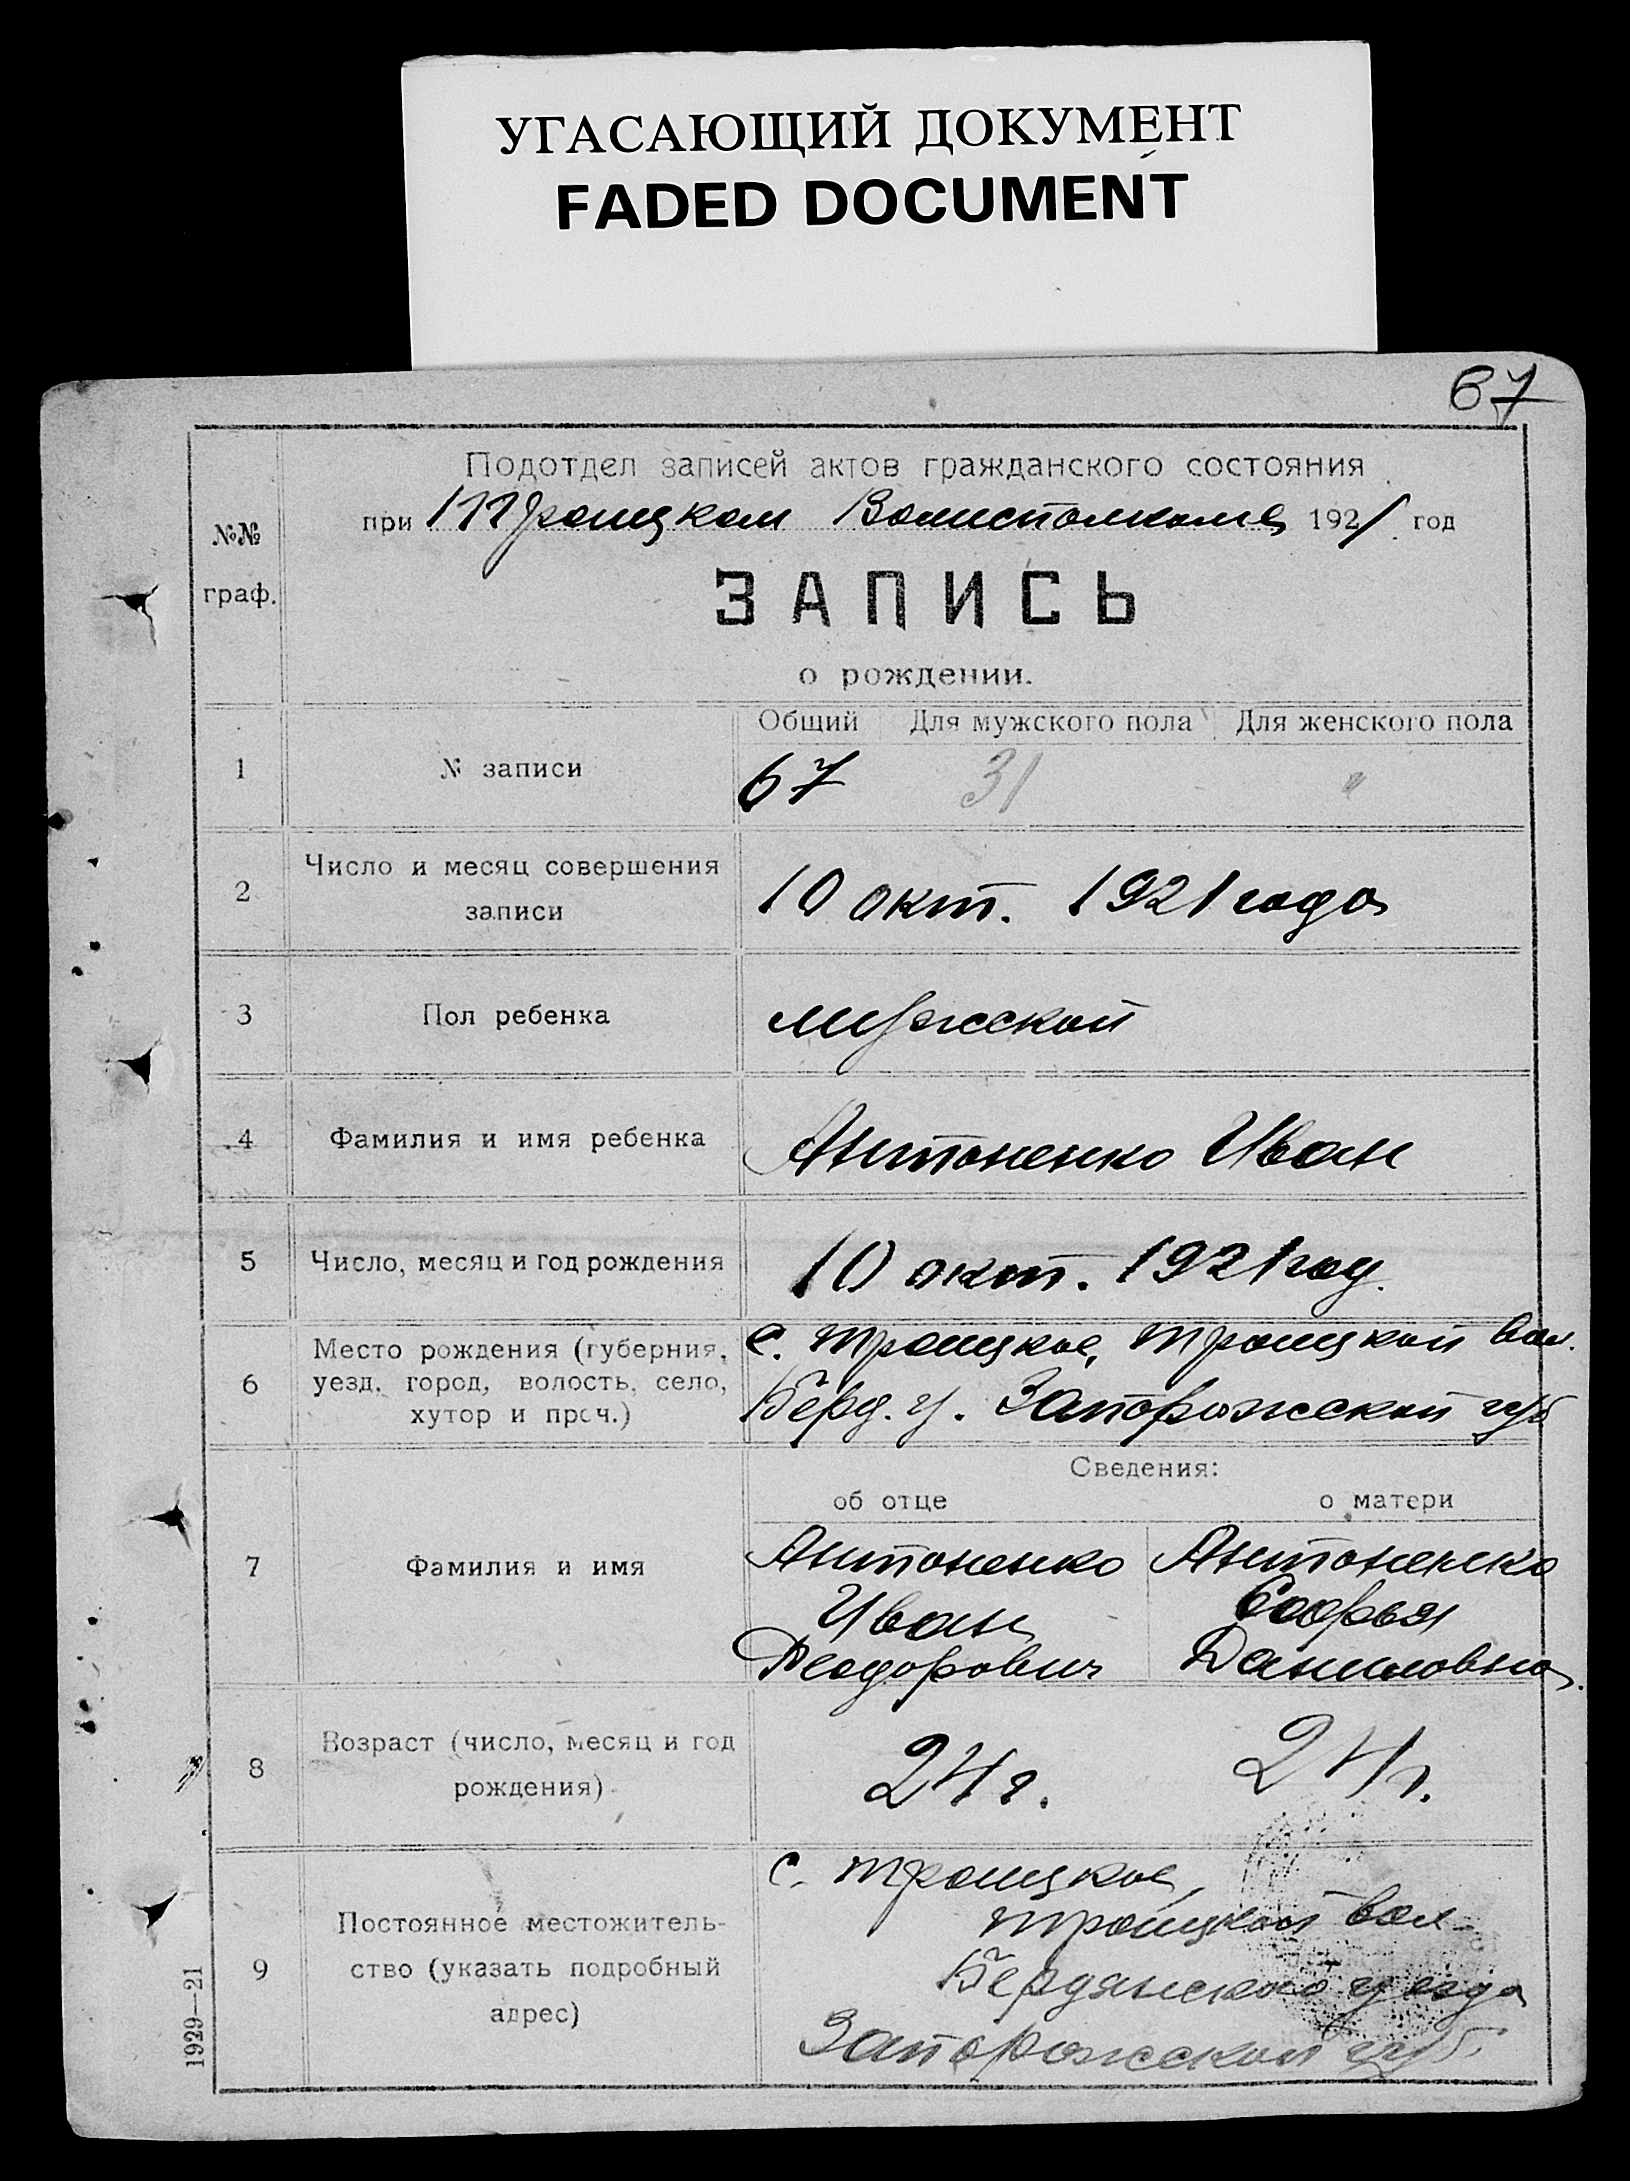 УГАСАЮЩИЙ ДОКУМЕНТ
FADED DOCUMENT
67
Подотдел записей актов гражданского состояния
при Троицком Волисполкоме 1921 год
№№
граф.
ЗАПИСЬ
о рождении.
Общий Для мужского пола Для женского пола
1 № записи 67 31 "
2 Число и месяц совершения
записи
10 окт. 1921 года
3 Пол ребенка мужской
4 Фамилия и имя ребенка Антоненко Иван
5 Число, месяц и год рождения 10 окт. 1921 год.
6 Место рождения (губерния,
уезд, город, волость, село,
хутор и проч.)
с. Троицкое, Троицкой вол.
Берд. у. Запорожской губ
Сведения:
об отце о матери
7 Фамилия и имя
Антоненко
Иван
Феодорович
Антоненко
Софья
Даниловна.
8 Возраст (число, месяц и год
рождения)
24 г. 24 г.
9 Постоянное местожитель-
ство (указать подробный
адрес)
с. Троицкое,
Троицкой вол.
Бердянского уезда
Запорожской губ.
1929—21